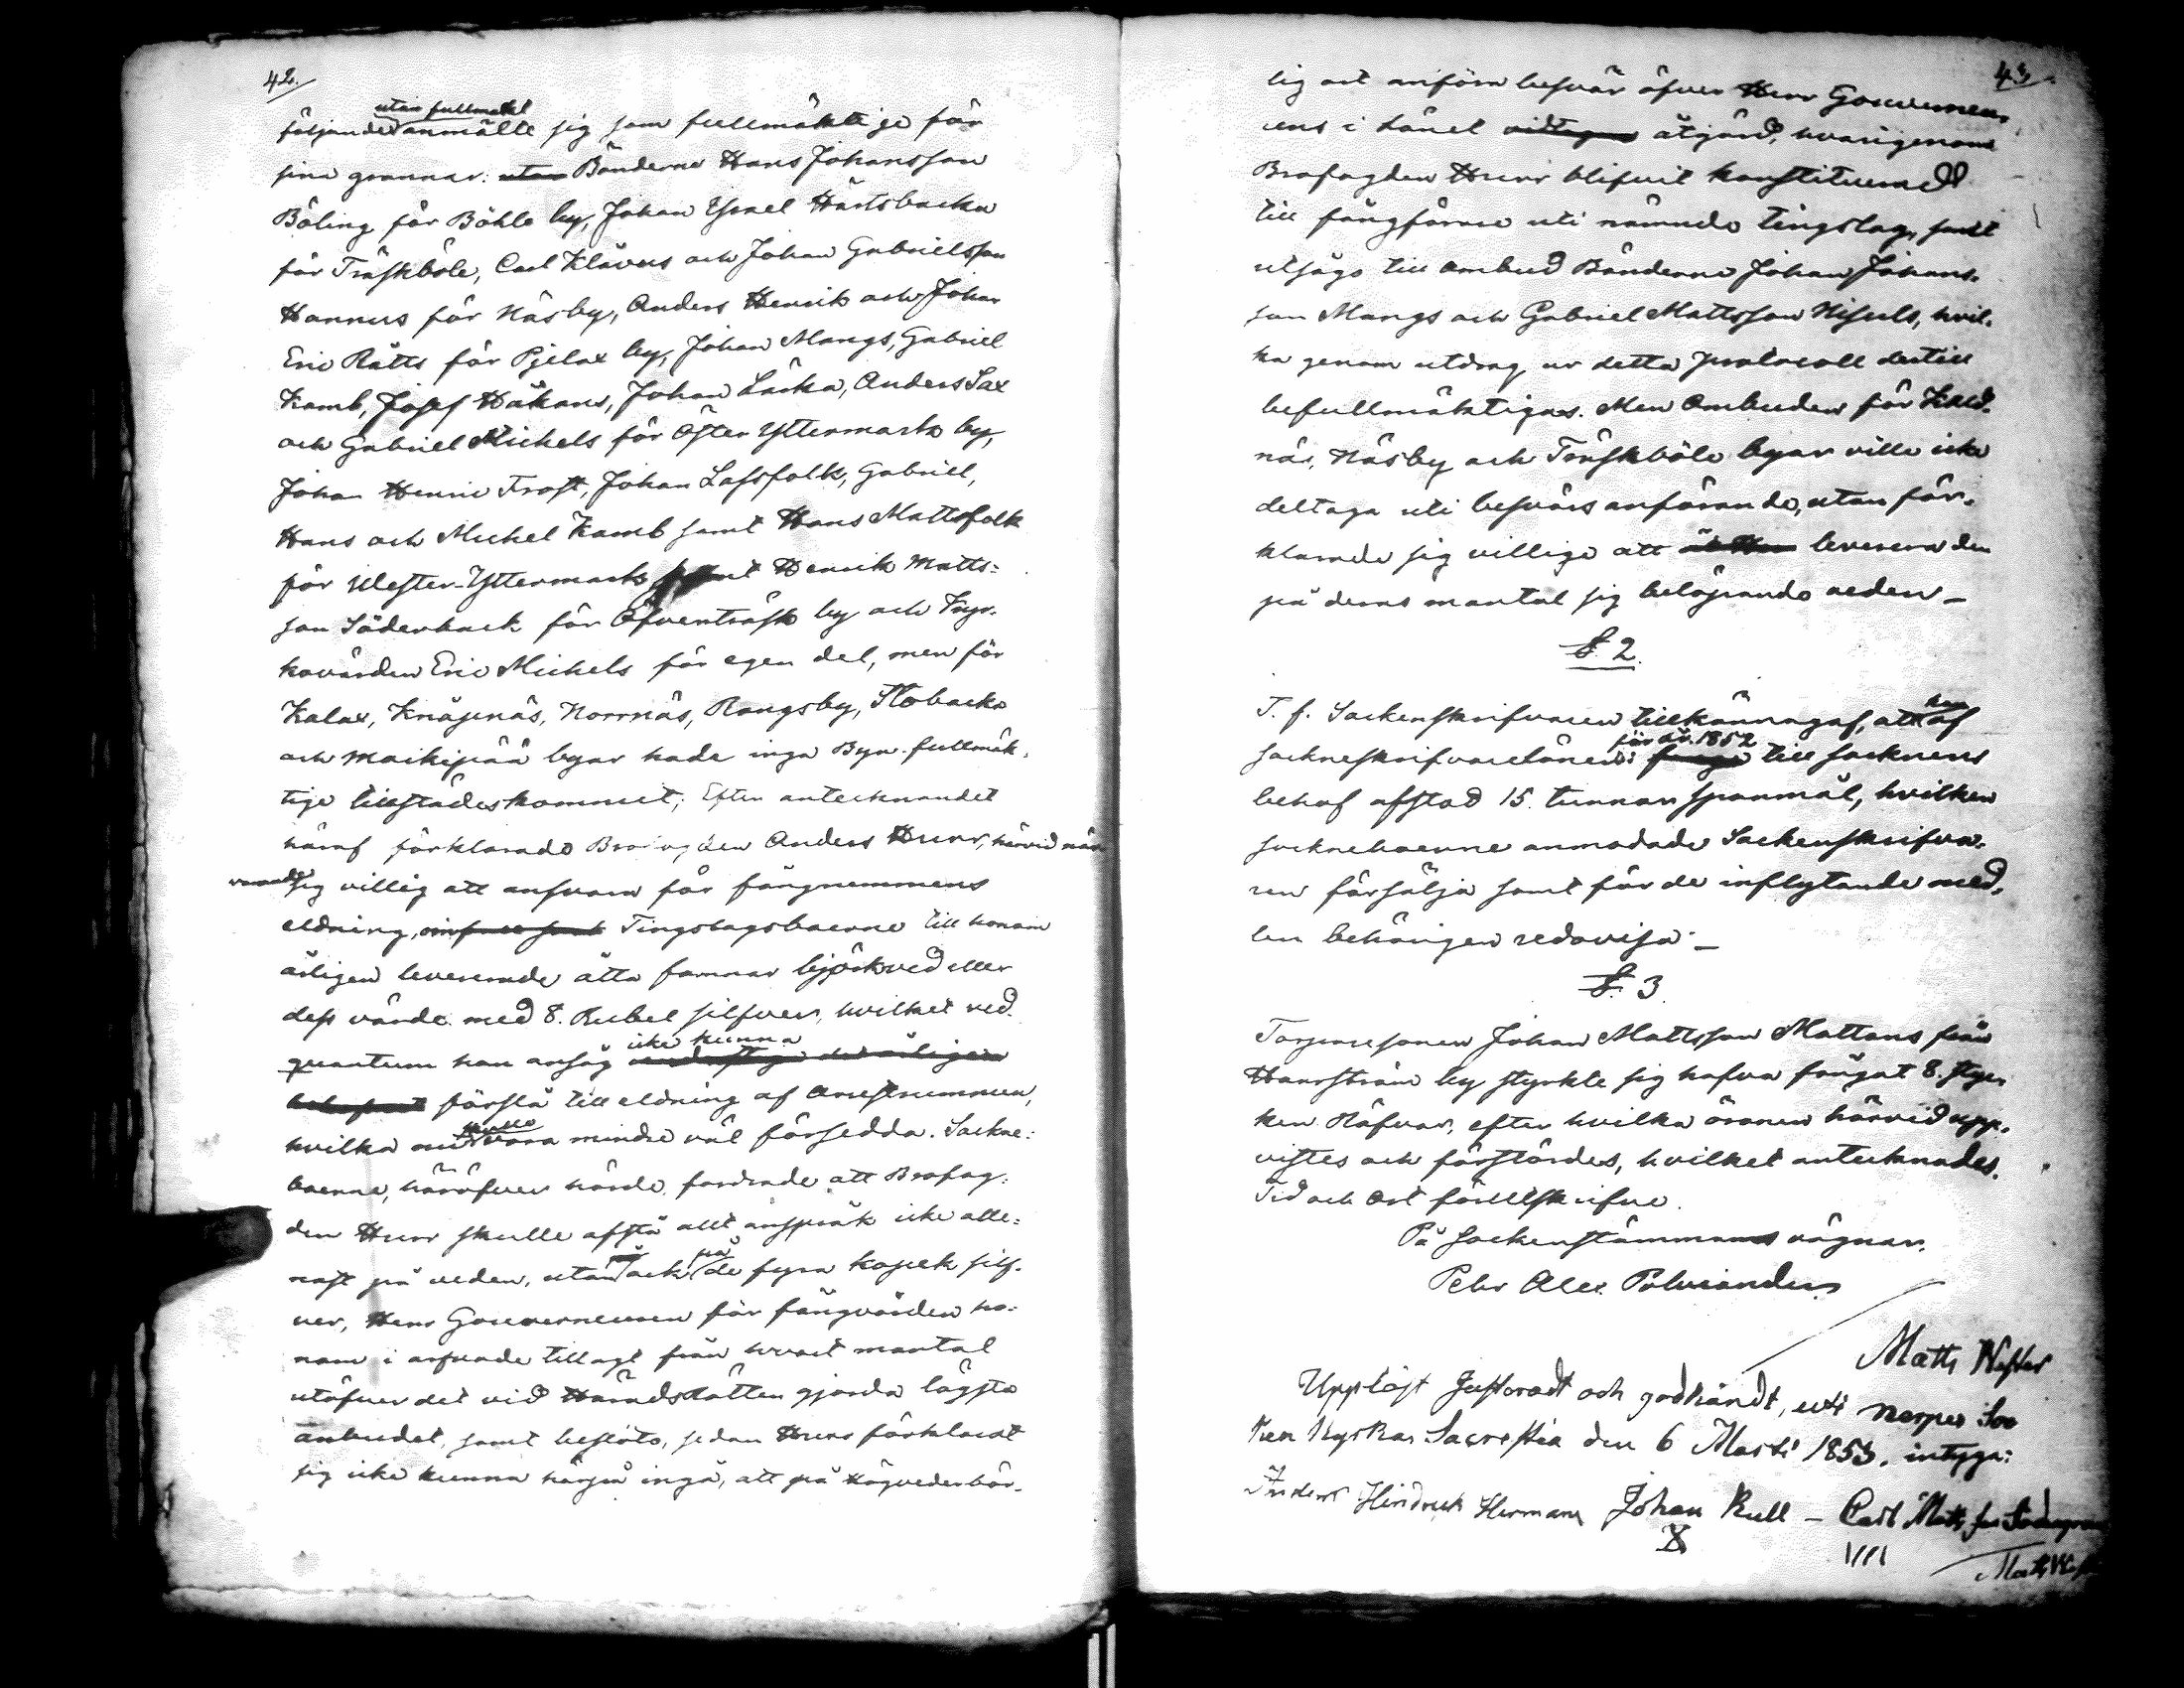 42.
utan fullmakt
följande anmälte sig som fullmäktige för
sina grannar: utan Bönderne Hans Johansson
Böling för Böhle by, Johan Ysrael Härtsbacka
för Träskböle, Carl Klåvus och Johan Gabrielsson
Hannus för Näsby, Anders Henrik och Johan
Eric Rätts för Pjelax by, Johan Mangs, Gabriel
Kamb, Josef Håkans, Johan Lårka, Anders Sax
och Gabriel Michels för Öster Yttermark by,
Johan Henric Frost, Johan Lassfolk, Gabriel,
Hans och Michel Kamb samt Hans Mattsfolk
för Wester-Yttermark samt Henrik Matts=
son Söderback för Öfventräsk by och Kyr-
kovärden Eric Michels för egen del, men för
Kalax, Knåpnäs, Norrnäs, Rangsby, Flobacka
och Maikipää byar hade inga Byn. fullmäk-
tige tillstädeskommit; Efter antecknandet
häraf förklarade Brofogden Anders Hurr, härvid när
varande
sig villig att ansvara för fångrummens
eldning, Tingslagsboerne till honom
årligen levererade åtta famnar björkved eller
dess värde med 8. Rubel silfver, hvilket ved
icke kunna
quantum han ansåg årligen
förslå till eldning af Arrestrummen,
skulle
hvilka nu vara mindre väl försedda. Sockne=
boerne, häröfver hörde, fordrade att Brofog=
den Hurr skulle afstå allt anspråk icke alle=
på
nast på veden, utan ock de fyra kopek silf-
ver, Herr Gouverneuren för fångvården ho=
nom i arfvode tillagt från hvart mantal
utöfver det vid Häradsrätten gjorda lägsta
anbudet, samt beslöts, sedan Hurr förklarat
sig icke kunna härpå ingå, att på högvederbör-
43.
lig ort anföra besvär öfver Herr Gouverneu-
rens i Länet vidtagna åtgärd, hvarigenom
Brofogden Hurr blifvit konstituerad
till fångförare uti nämnde tingslag, samt
utsågs till ombud Bönderne Johan Johans-
son Mangs och Gabriel Mattsson Nisuls, hvil-
ka genom utdrag ur detta protocoll dertill
befullmäktigas. Men Ombuden för Kald-
när, Näsby och Träskböle byar ville icke
deltaga uti besvärs anförande, utan för-
klarade sig villige att leverera den
på deras mantal sig belöpande veden –
§ 2.
T. f. Sockenskrifvaren tillkännagaf, att han af
för år 1852
sockneskrifvarelönen till socknens
behof afstod 15. tunnor spanmål, hvilken
socknehoerne anmodade Sockenskrifva-
ren försälja samt för de inflytande med-
len behörigen redovisa –
§ 3
Torparesonen Johan Mattsson Mattans från
Harrström by styrkte sig hafva fångat 8. styc-
ken Räfvar, efter hvilka öronen härvid upp-
vistes och förstördes, hvilket antecknades.
Tid och Ort förutskrifne.
På Sockenstämmans vägnar,
Pehr Alex. Polviander
Matts Wester
Uppläst Justeradt och godkändt, uti Nerpes Soc
ken Kyrkas Sacrestia den 6 Marti 1853. intyga:
Anders Hindrick Hermans Johan Rull – Carl Mattsson
X
Matts W